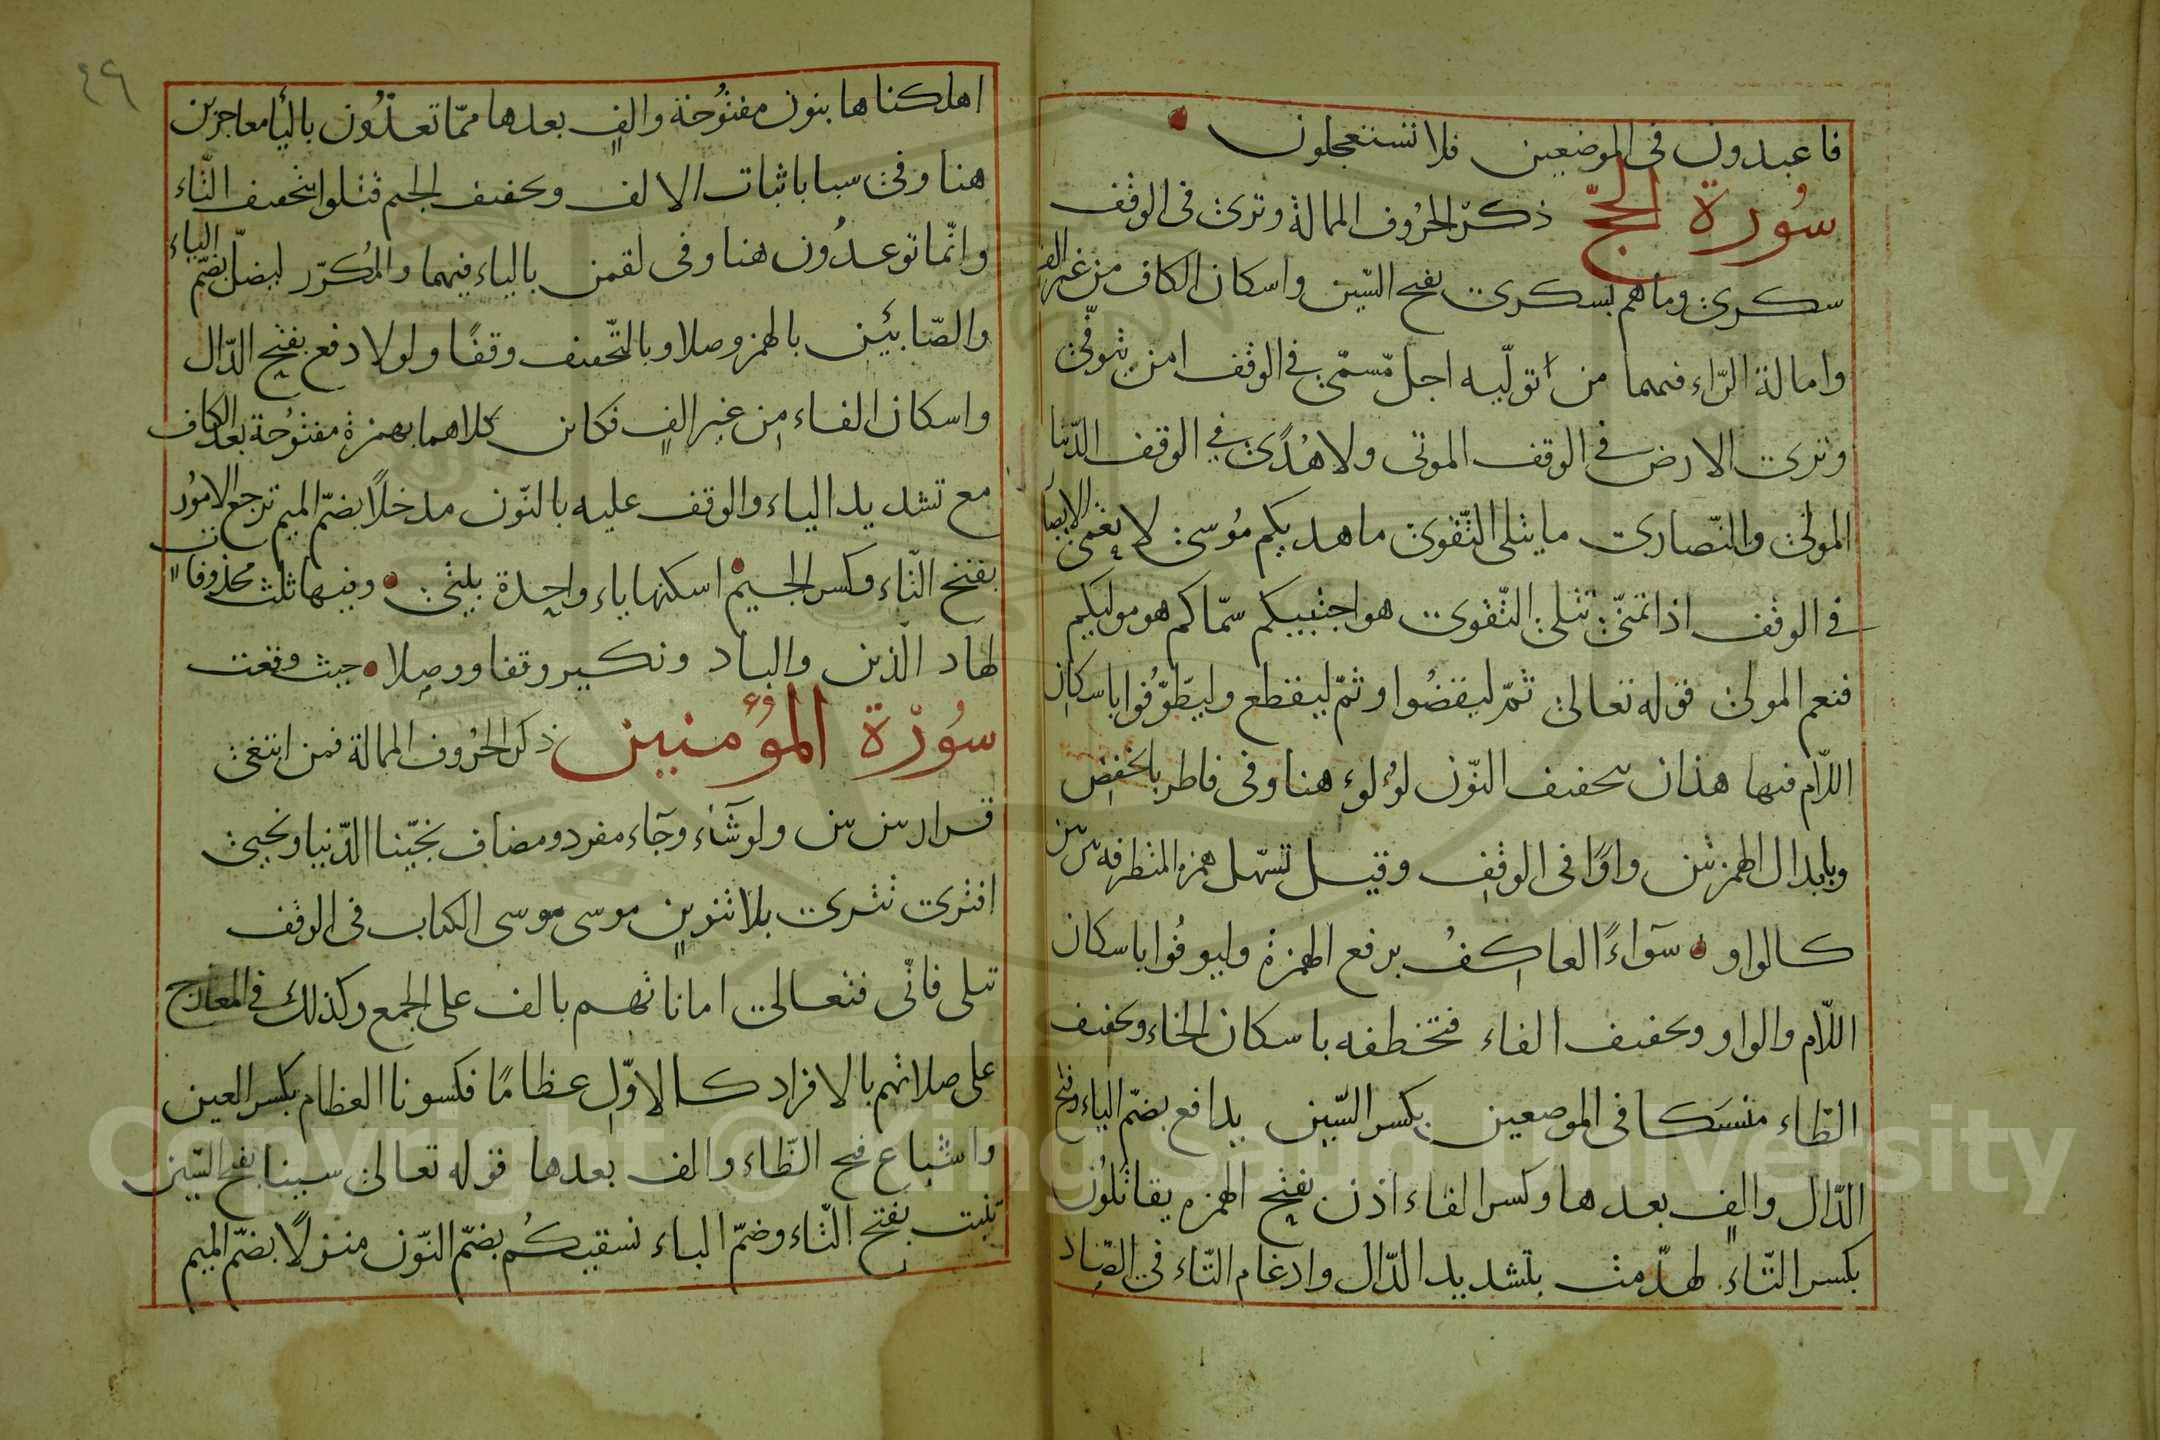 فاعبدون في الموضعين فلا تستعجلون
سورة الحج ذكر الحروف الممالة وترى في الوقف
سكرى وما هم بسكرى بفتح السين واسكان الكاف من غير الف
وامالة الراء فيهما من تولّيه اجل مسمّى في الوقف امن يتوفّى
وترى الارض في الوقف الموتى ولا هدًى في الوقف الدنيا
المولى والنصارى ما يتلى التقوى ما هديكم موسى لا تعمى الابصار
في الوقف اذا تمنّى تتلى التقوى هو اجتبيكم سمّاكم هو موليكم
فنعم المولى قوله تعالى ثمّ ليقضوا وثمّ ليقطع وليطّوّفوا باسكان
اللام فيها هذان بتخفيف النّون لؤلوء هنا وفي فاطر بالخفض
وبابدال الهمزتين واوًا في الوقف وقيل تسهل همزه المتطرفه بين بين
كالواو سوآءً العاكف برفع الهمزة وليوفوا باسكان
اللّام والواو وتخفيف الفاء فتخطفه باسكان الخاء وتخفيف
الطّاء منسكا في الموضعين بكسر السّين يدافع بضمّ الياء وفتح
الدّال والف بعدها وكسر الفاء اذن بفتح الهمزه يقاتلون
بكسر التّاء لهدّمت بتشديد الدّال وادغام التّاء في الصّاد
٤٩
اهلكناها بنون مفتوحة والف بعدها ممّا تعدّون بالتّاء معاجزين
هنا وفي سبا باثبات الالف وتخفيف الجيم قتلوا بتخفيف التّاء
وانّما توعدون هنا وفي لقمن بالياء فيهما والمكرّر ليضلّ بضمّ الياء
والصّابئين بالهمز وصلا وبالتّخفيف وقفًا ولولا دفع بفتح الدّال
واسكان الفاء من غير الف فكاين كلاهما بهمزة مفتوحة بعد الكاف
مع تشديد الياء والوقف عليه بالنّون مدخلاً بضمّ الميم ترجع الامور
بفتح التّاء وكسر الجيم اسكنها ياء واحدة بيتى وفيها ثلث محذوفات
لهاد الّذين والباد ونكير وقفا ووصلا حيث وقعت
سورة المؤمنين ذكر الحروف الممالة فمن ابتغى
قرار بين بين ولو شآء وجآء مفرد ومضاف نجّينا الدّنيا ونحيى
افترى تترى بلا تنوين موسى موسى الكتاب في الوقف
تتلى فانّى فتعالى اماناتهم بالف على الجمع وكذلك في المعارج
على صلاتهم بالافراد كالاوّل عظامًا فكسونا العظام بكسر العين
واشباع فتح الظّاء والف بعدها قوله تعالى سينا بفتح السّين
تنبت بفتح التّاء وضمّ الباء نسقيكم بضمّ النّون منزلاً بضمّ الميم
Copyright © King Saud University